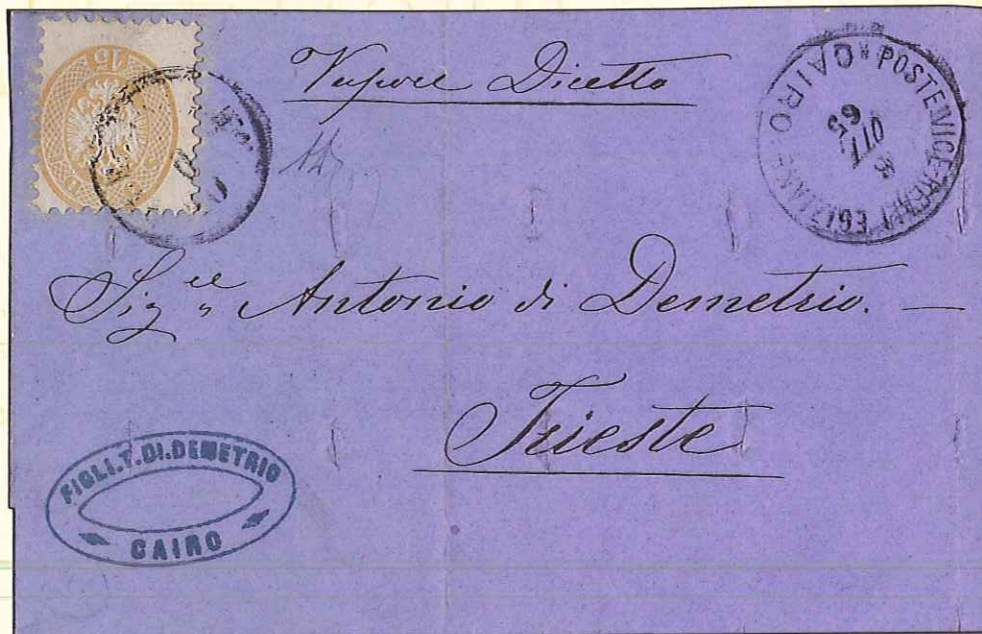 15
Vapore Diretto
POSTE VICE-REALI EGIZIANE
CAIRO
6
OTT
65
Sig.re Antonio di Demetrio. —
Trieste
FIGLI.T.DI.DEMETRIO
CAIRO